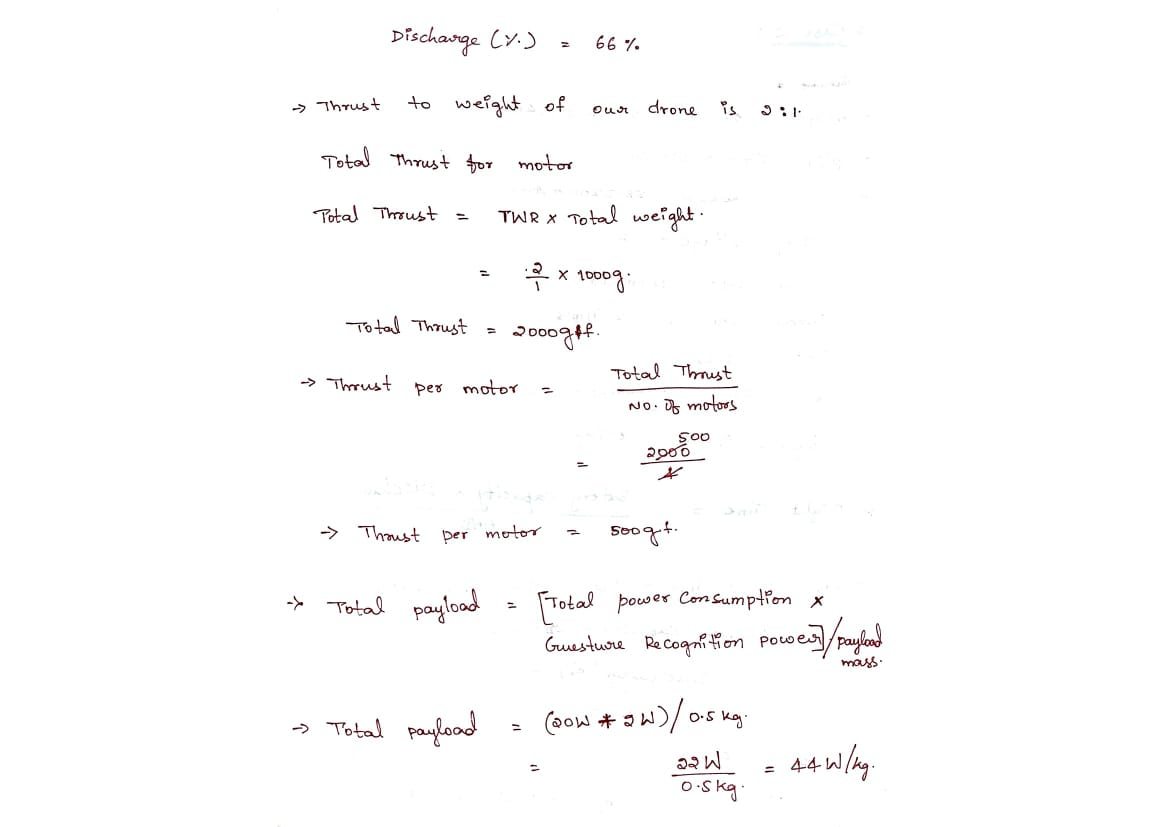 Discharge (%) = 66 %
→ Thrust to weight of our drone is 2:1.
Total Thrust for motor
Total Thrust = TWR x Total weight.
= 2/1 x 1000g.
Total Thrust = 2000gtf.
→ Thrust per motor = Total Thrust / No. Of motors
= 2000 / 4 500
→ Thrust per motor = 500gf.
→ Total payload = [Total power Consumption x
Guesture Recognition power]/payload mass.
→ Total payload = (20W * 2W)/0.5 kg.
= 22W / 0.5kg. = 44 W/kg.